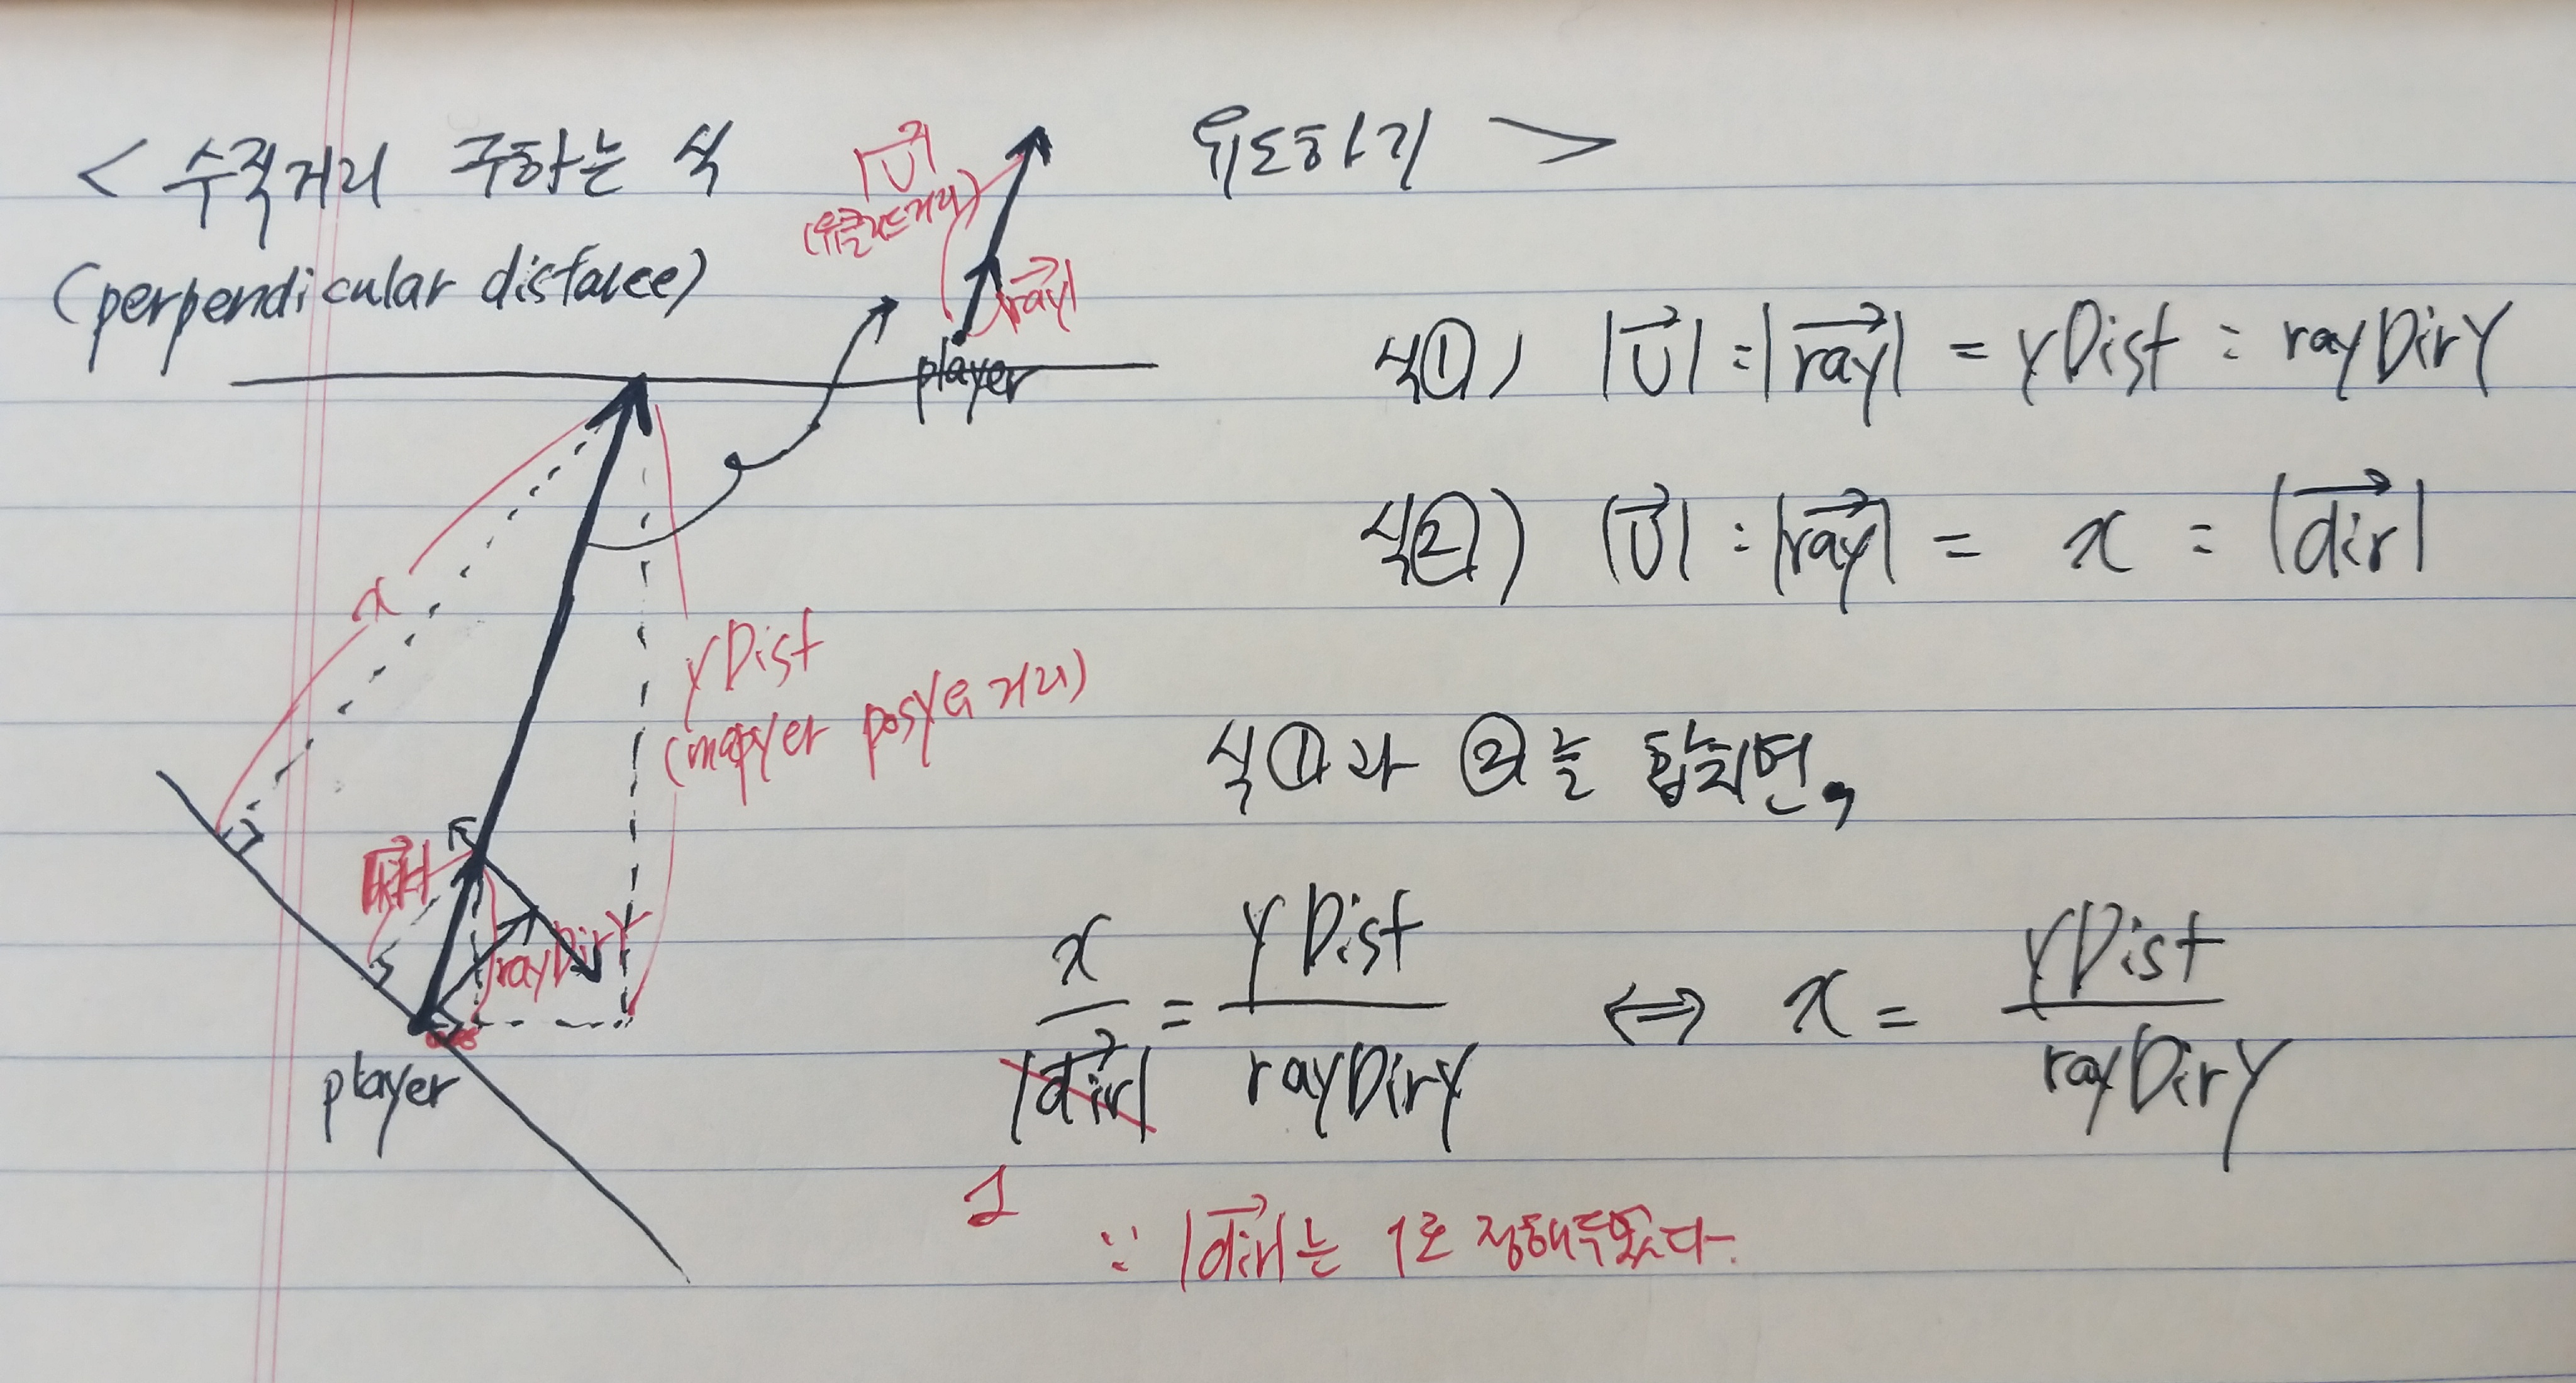 < 수직거리 구하는 식 유도하기 >
(perpendicular distance)
|U|
(유클리드거리)
|ray|
player
x
yDist
posY와 거리)
rayDirY
player
식①) |U| : |ray| = yDist : rayDirY
식②) |U| : |ray| = x : |dir|
식①과 ②를 합치면,
x / |dir| = yDist / rayDirY ⇔ x = yDist / rayDirY
1
∵ |dir|는 1로 정해두었다.